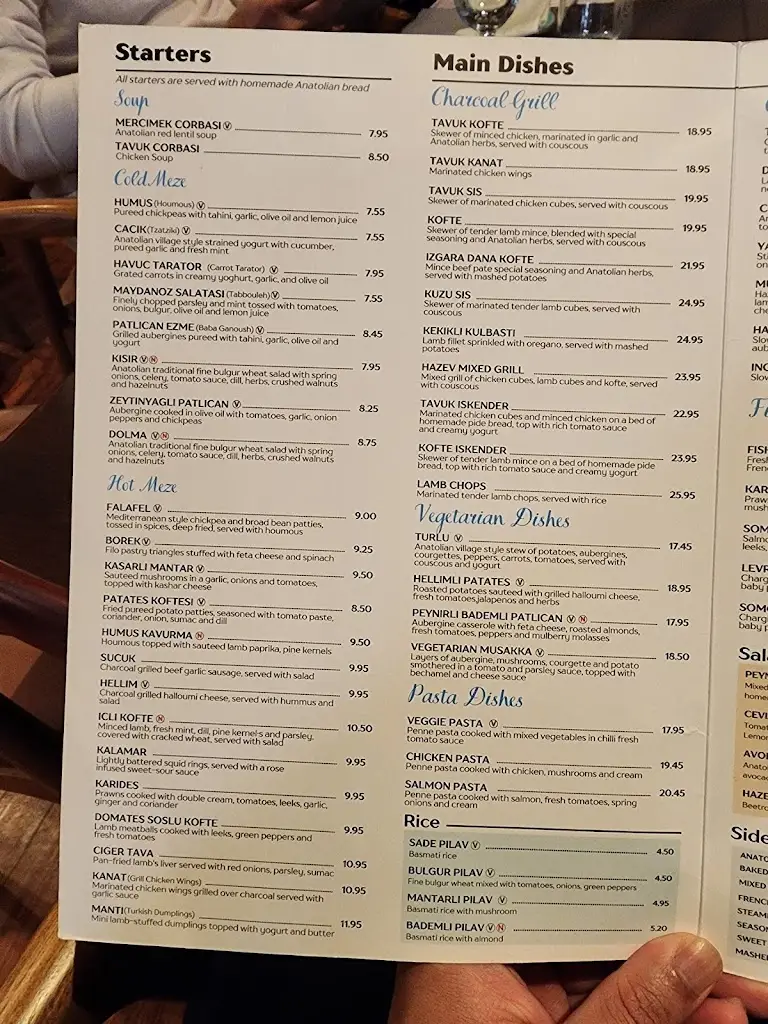 Starters
All starters are served with homemade Anatolian bread
Soup
MERCIMEK CORBASI Ⓥ 7.95
Anatolian red lentil soup
TAVUK CORBASI 8.50
Chicken Soup
Cold Meze
HUMUS (Houmous) Ⓥ 7.55
Pureed chickpeas with tahini, garlic, olive oil and lemon juice
CACIK (Tzatziki) Ⓥ 7.55
Anatolian village style strained yogurt with cucumber,
pureed garlic and fresh mint
HAVUC TARATOR (Carrot Tarator) Ⓥ 7.95
Grated carrots in creamy yoghurt, garlic, and olive oil
MAYDANOZ SALATASI (Tabbouleh) Ⓥ 7.55
Finely chopped parsley and mint tossed with tomatoes,
onions, bulgur, olive oil and lemon juice
PATLICAN EZME (Baba Ganoush) Ⓥ 8.45
Grilled aubergines pureed with tahini, garlic, olive oil and
yogurt
KISIR Ⓥ Ⓝ 7.95
Anatolian traditional fine bulgur wheat salad with spring
onions, celery, tomato sauce, dill, herbs, crushed walnuts
and hazelnuts
ZEYTINYAGLI PATLICAN Ⓥ 8.25
Aubergine cooked in olive oil with tomatoes, garlic, onion
peppers and chickpeas
DOLMA Ⓥ Ⓝ 8.75
Anatolian traditional fine bulgur wheat salad with spring
onions, celery, tomato sauce, dill, herbs, crushed walnuts
and hazelnuts
Hot Meze
FALAFEL Ⓥ 9.00
Mediterranean style chickpea and broad bean patties,
tossed in spices, deep fried, served with houmous
BOREK Ⓥ 9.25
Filo pastry triangles stuffed with feta cheese and spinach
KASARLI MANTAR Ⓥ 9.50
Sauteed mushrooms in a garlic, onions and tomatoes,
topped with kashar cheese
PATATES KOFTESI Ⓥ 8.50
Fried pureed potato patties, seasoned with tomato paste,
coriander, onion, sumac and dill
HUMUS KAVURMA Ⓝ 9.50
Houmous topped with sauteed lamb paprika, pine kernels
SUCUK 9.95
Charcoal grilled beef garlic sausage, served with salad
HELLIM Ⓥ 9.95
Charcoal grilled halloumi cheese, served with hummus and
salad
ICLI KOFTE Ⓝ 10.50
Minced lamb, fresh mint, dill, pine kernels and parsley,
covered with cracked wheat, served with salad
KALAMAR 9.95
Lightly battered squid rings, served with a rose
infused sweet-sour sauce
KARIDES 9.95
Prawns cooked with double cream, tomatoes, leeks, garlic,
ginger and coriander
DOMATES SOSLU KOFTE 9.95
Lamb meatballs cooked with leeks, green peppers and
fresh tomatoes
CIGER TAVA 10.95
Pan-fried lamb's liver served with red onions, parsley, sumac
KANAT (Grill Chicken Wings) 10.95
Marinated chicken wings grilled over charcoal served with
garlic sauce
MANTI (Turkish Dumplings) 11.95
Mini lamb-stuffed dumplings topped with yogurt and butter
Main Dishes
Charcoal Grill
TAVUK KOFTE 18.95
Skewer of minced chicken, marinated in garlic and
Anatolian herbs, served with couscous
TAVUK KANAT 18.95
Marinated chicken wings
TAVUK SIS 19.95
Skewer of marinated chicken cubes, served with couscous
KOFTE 19.95
Skewer of tender lamb mince, blended with special
seasoning and Anatolian herbs, served with couscous
IZGARA DANA KOFTE 21.95
Mince beef pate special seasoning and Anatolian herbs,
served with mashed potatoes
KUZU SIS 24.95
Skewer of marinated tender lamb cubes, served with
couscous
KEKIKLI KULBASTI 24.95
Lamb fillet sprinkled with oregano, served with mashed
potatoes
HAZEV MIXED GRILL 23.95
Mixed grill of chicken cubes, lamb cubes and kofte, served
with couscous
TAVUK ISKENDER 22.95
Marinated chicken cubes and minced chicken on a bed of
homemade pide bread, top with rich tomato sauce
and creamy yogurt
KOFTE ISKENDER 23.95
Skewer of tender lamb mince on a bed of homemade pide
bread, top with rich tomato sauce and creamy yogurt
LAMB CHOPS 25.95
Marinated tender lamb chops, served with rice
Vegetarian Dishes
TURLU Ⓥ 17.45
Anatolian village style stew of potatoes, aubergines,
courgettes, peppers, carrots, tomatoes, served with
couscous and yogurt
HELLIMLI PATATES Ⓥ 18.95
Roasted potatoes sauteed with grilled halloumi cheese,
fresh tomatoes,jalapenos and herbs
PEYNIRLI BADEMLI PATLICAN Ⓥ Ⓝ 17.95
Aubergine casserole with feta cheese, roasted almonds,
fresh tomatoes, peppers and mulberry molasses
VEGETARIAN MUSAKKA Ⓥ 18.50
Layers of aubergine, mushrooms, courgette and potato
smothered in a tomato and parsley sauce, topped with
bechamel and cheese sauce
Pasta Dishes
VEGGIE PASTA Ⓥ 17.95
Penne pasta cooked with mixed vegetables in chilli fresh
tomato sauce
CHICKEN PASTA 19.45
Penne pasta cooked with chicken, mushrooms and cream
SALMON PASTA 20.45
Penne pasta cooked with salmon, fresh tomatoes, spring
onions and cream
Rice
SADE PILAV Ⓥ 4.50
Basmati rice
BULGUR PILAV Ⓥ 4.50
Fine bulgur wheat mixed with tomatoes, onions, green peppers
MANTARLI PILAV Ⓥ 4.95
Basmati rice with mushroom
BADEMLI PILAV Ⓥ Ⓝ 5.20
Basmati rice with almond